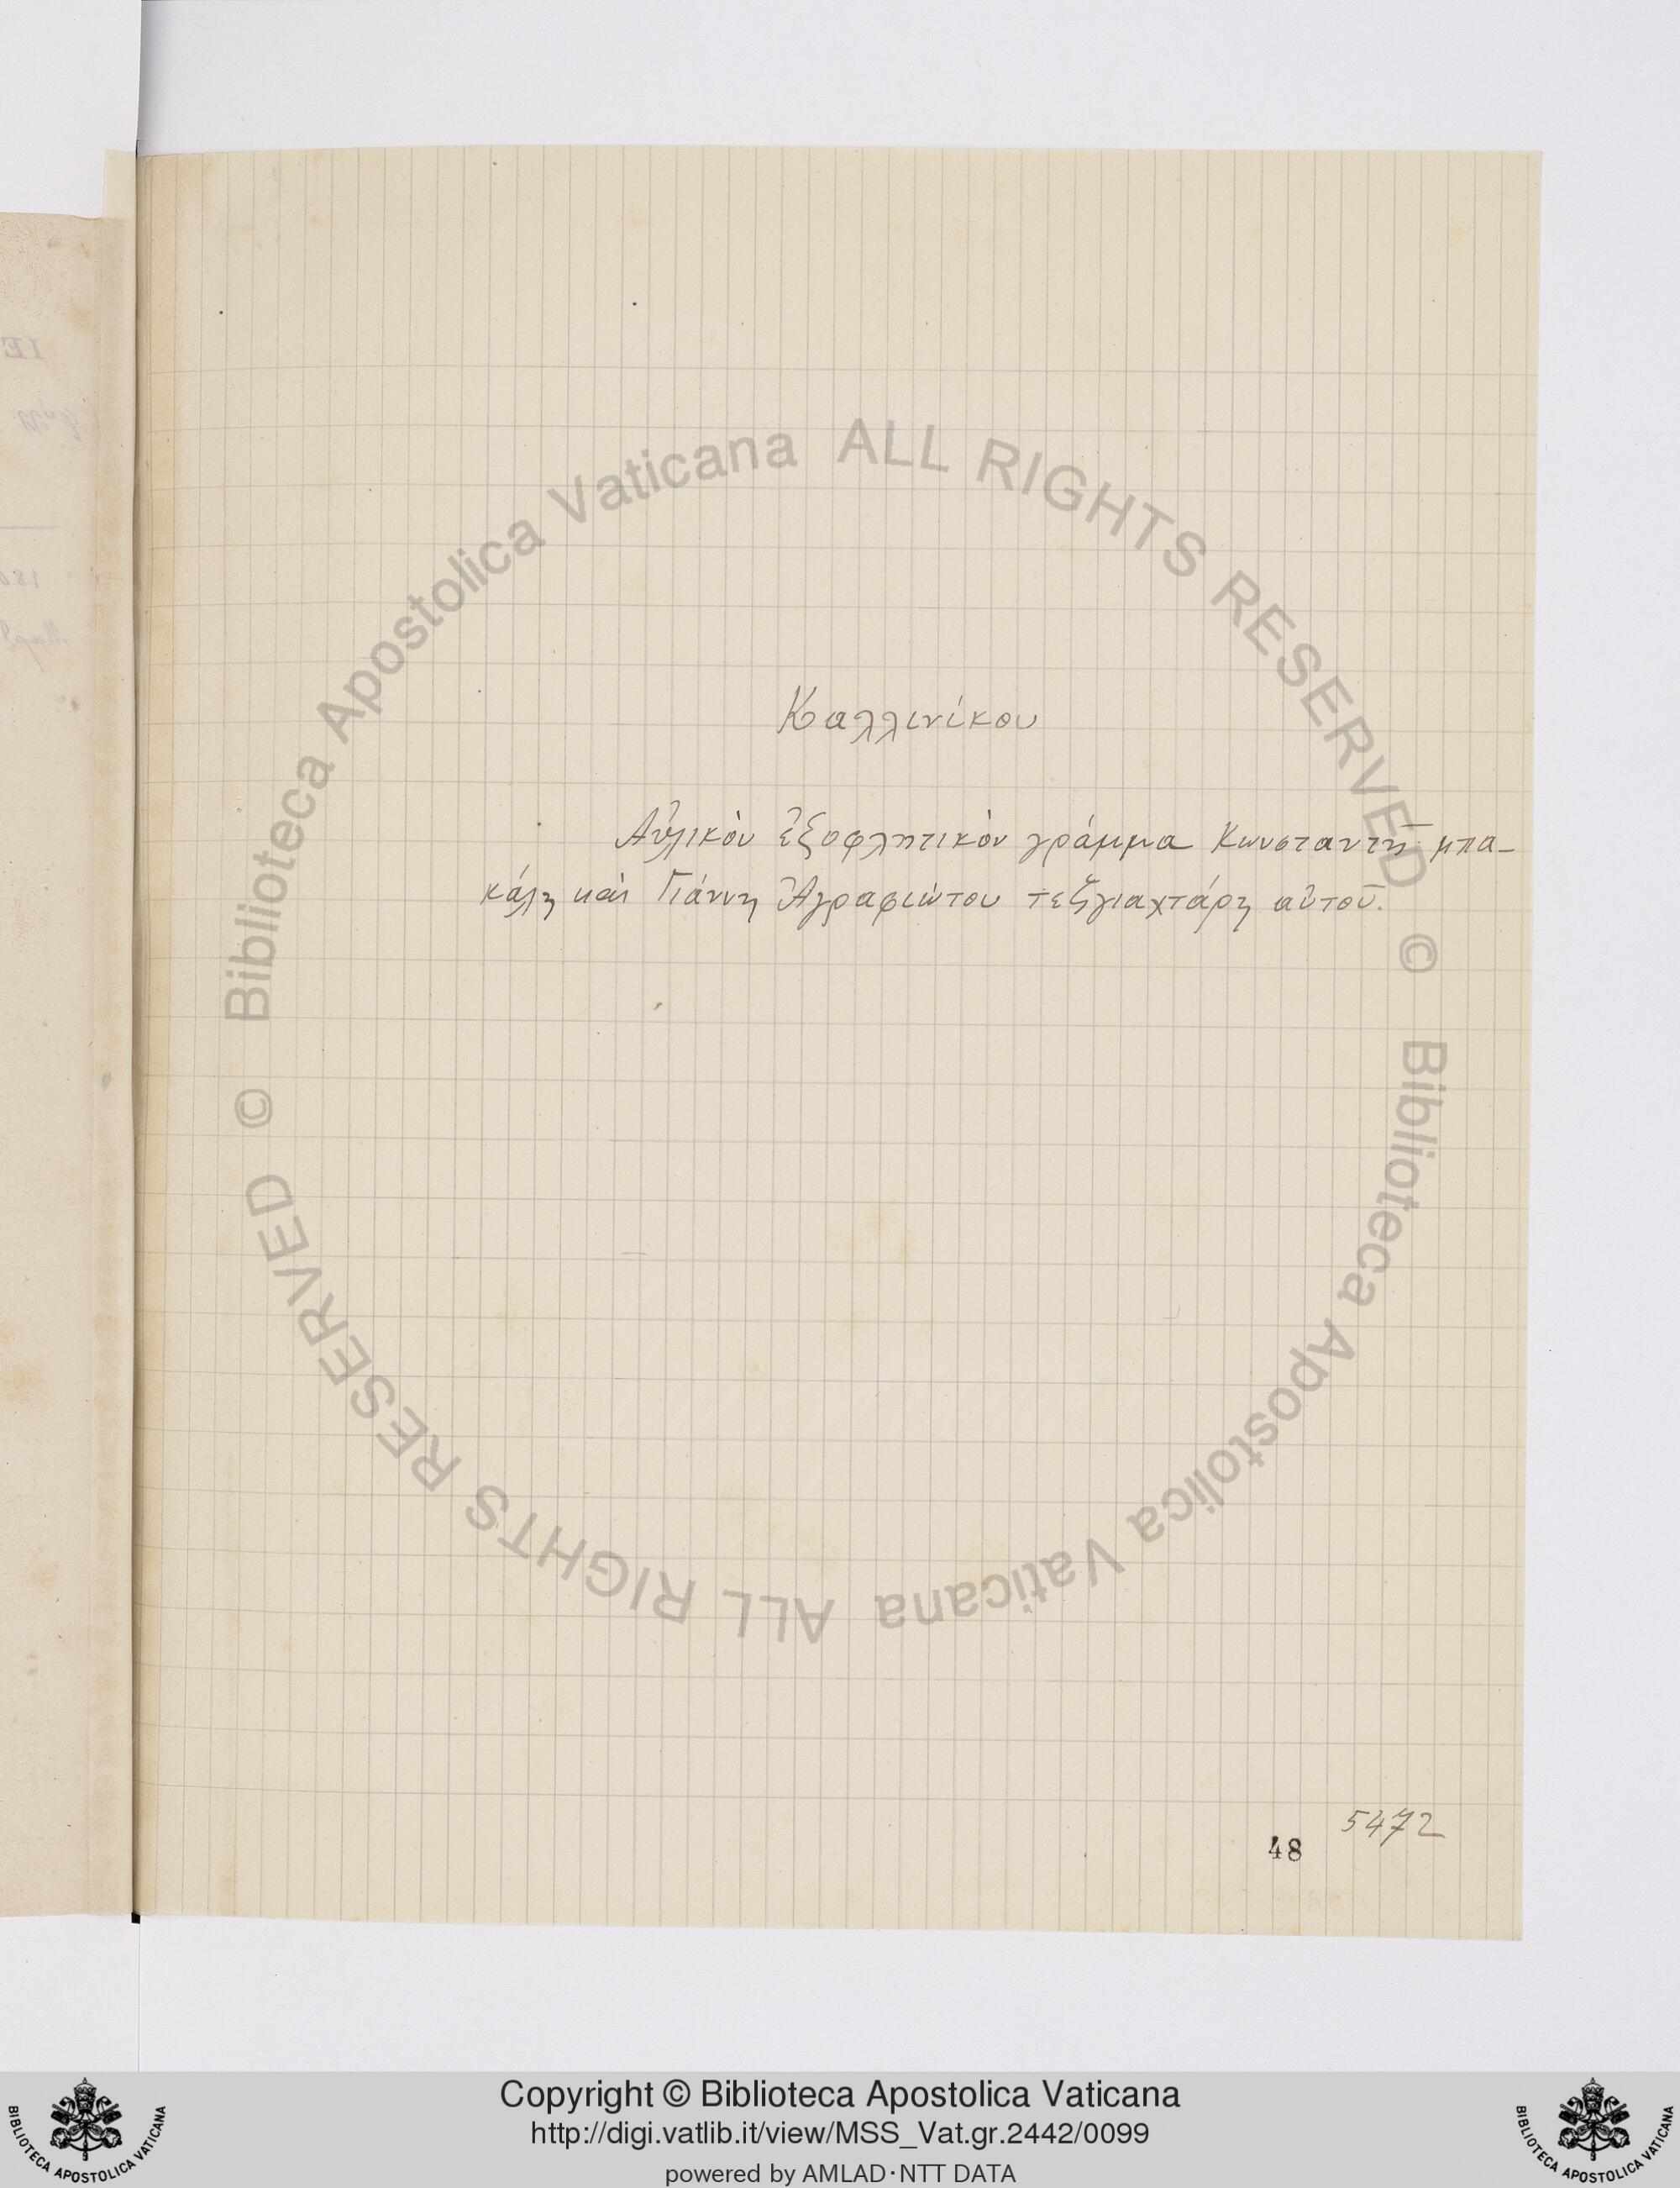 Καλλινίκου
Αὐλικὸν ἐξοφλητικὸν γράμμα Κωνσταντῆ μπα-
κάλη καὶ Γιάννη Ἀγραφιώτου τεζγιαχτάρη αὐτοῦ.
5472
48
© Biblioteca Apostolica Vaticana ALL RIGHTS RESERVED
© Biblioteca Apostolica Vaticana ALL RIGHTS RESERVED
Copyright © Biblioteca Apostolica Vaticana
http://digi.vatlib.it/view/MSS_Vat.gr.2442/0099
powered by AMLAD·NTT DATA
BIBLIOTECA APOSTOLICA VATICANA
BIBLIOTECA APOSTOLICA VATICANA